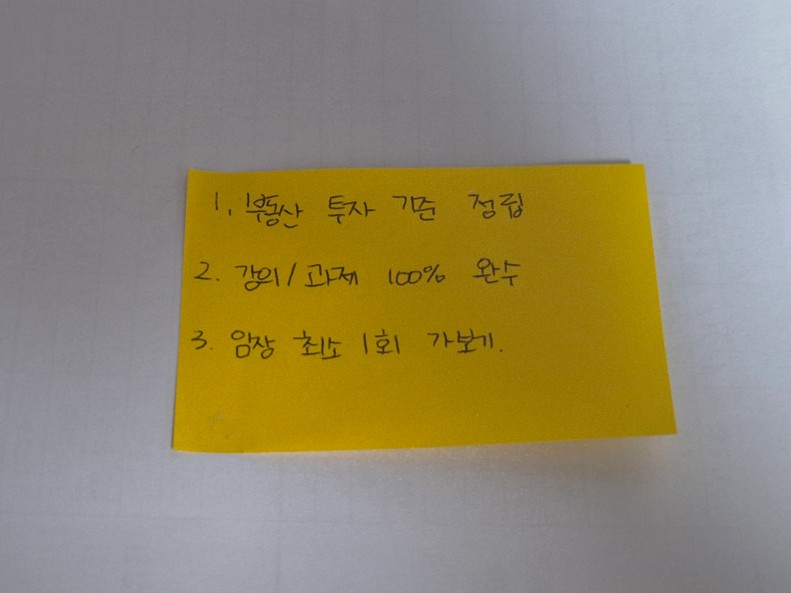 1. 부동산 투자 기준 정립
2. 강의/과제 100% 완수
3. 암장 최소 1회 가보기.